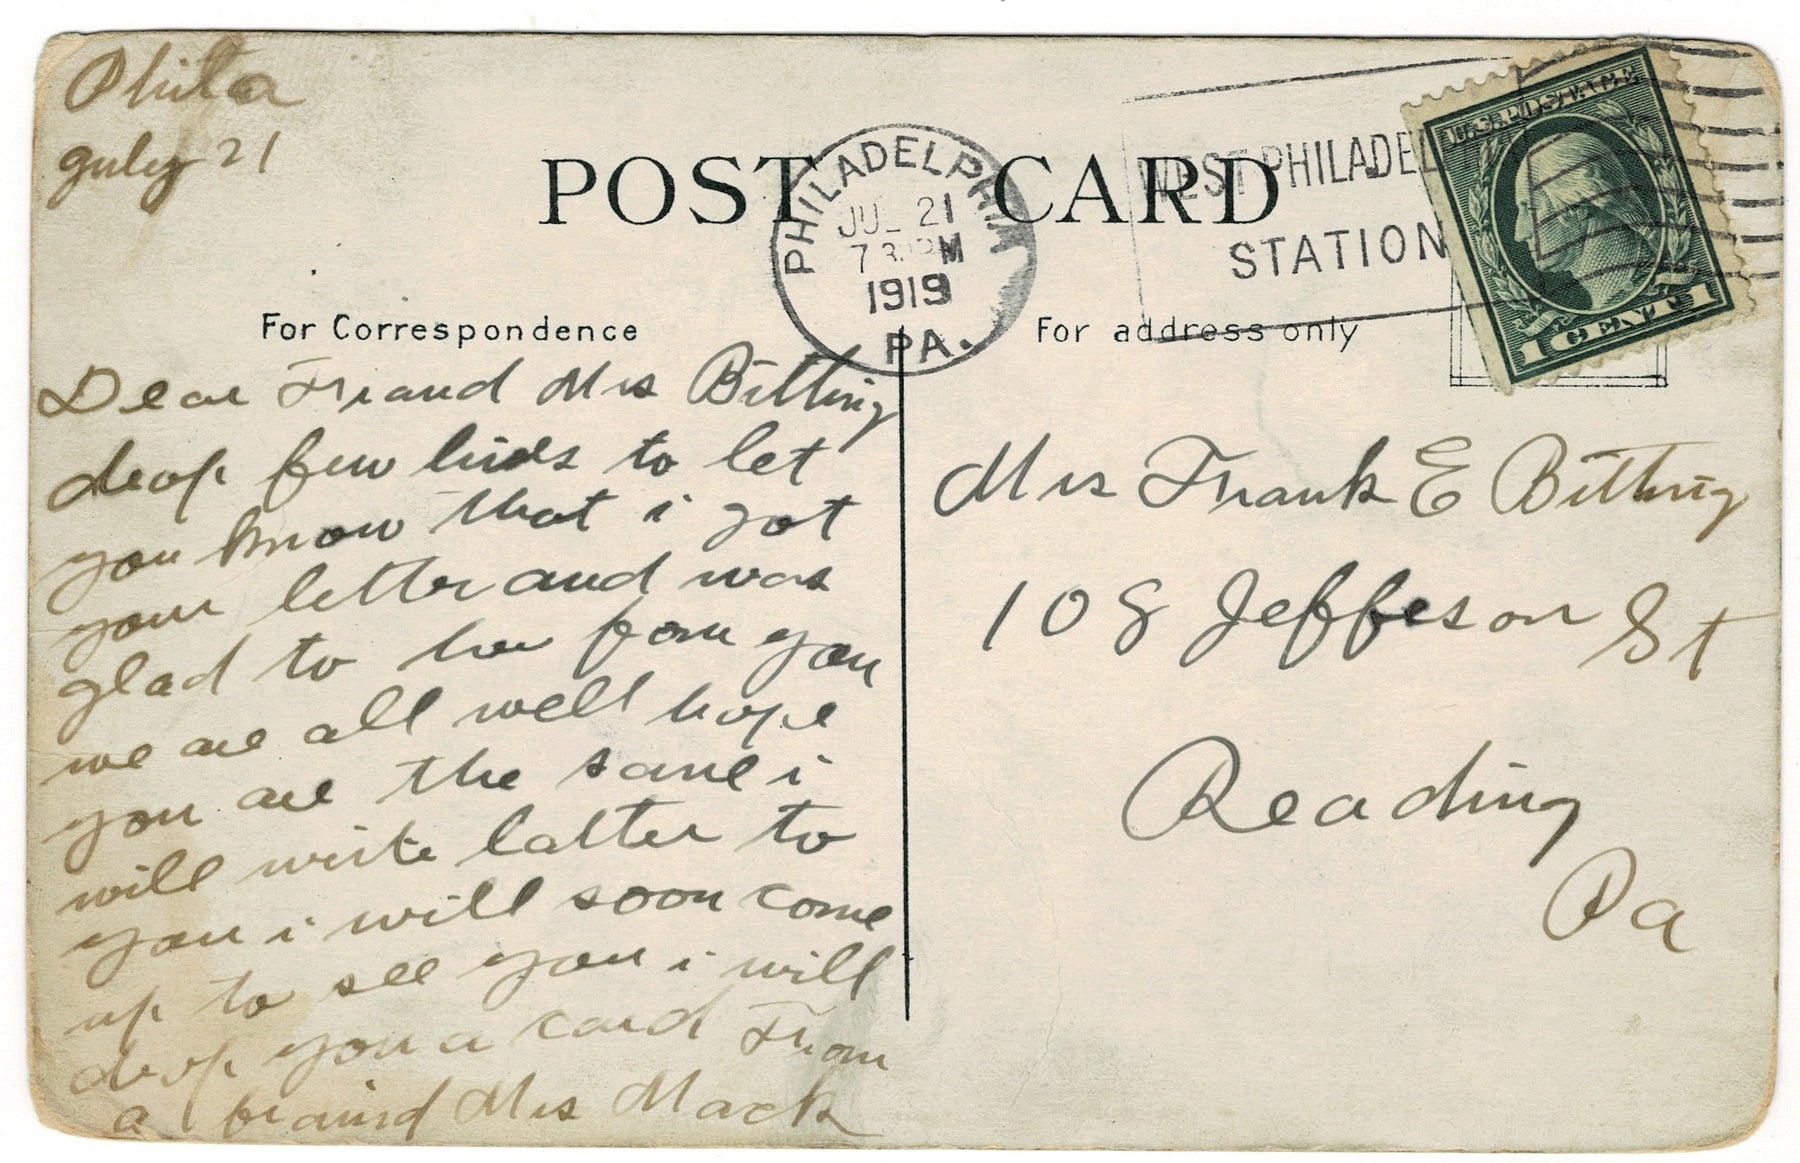 Phila
July 21
POST CARD
PHILADELPHIA
JUL 21
7 30 PM
1919
PA.
WEST PHILADEL
STATION
U.S. POSTAGE
1 CENT 1
For Correspondence
For address only
Dear Friand Mrs Bitting
drop few lines to let
you know that i got
your letter and was
glad to her from you
we are all well hope
you are the same i
will write latter to
you i will soon come
up to see you i will
drop you a card From
a fraind Mrs Mack
Mrs Frank E Bitting
108 Jeffeson St
Reading
Pa